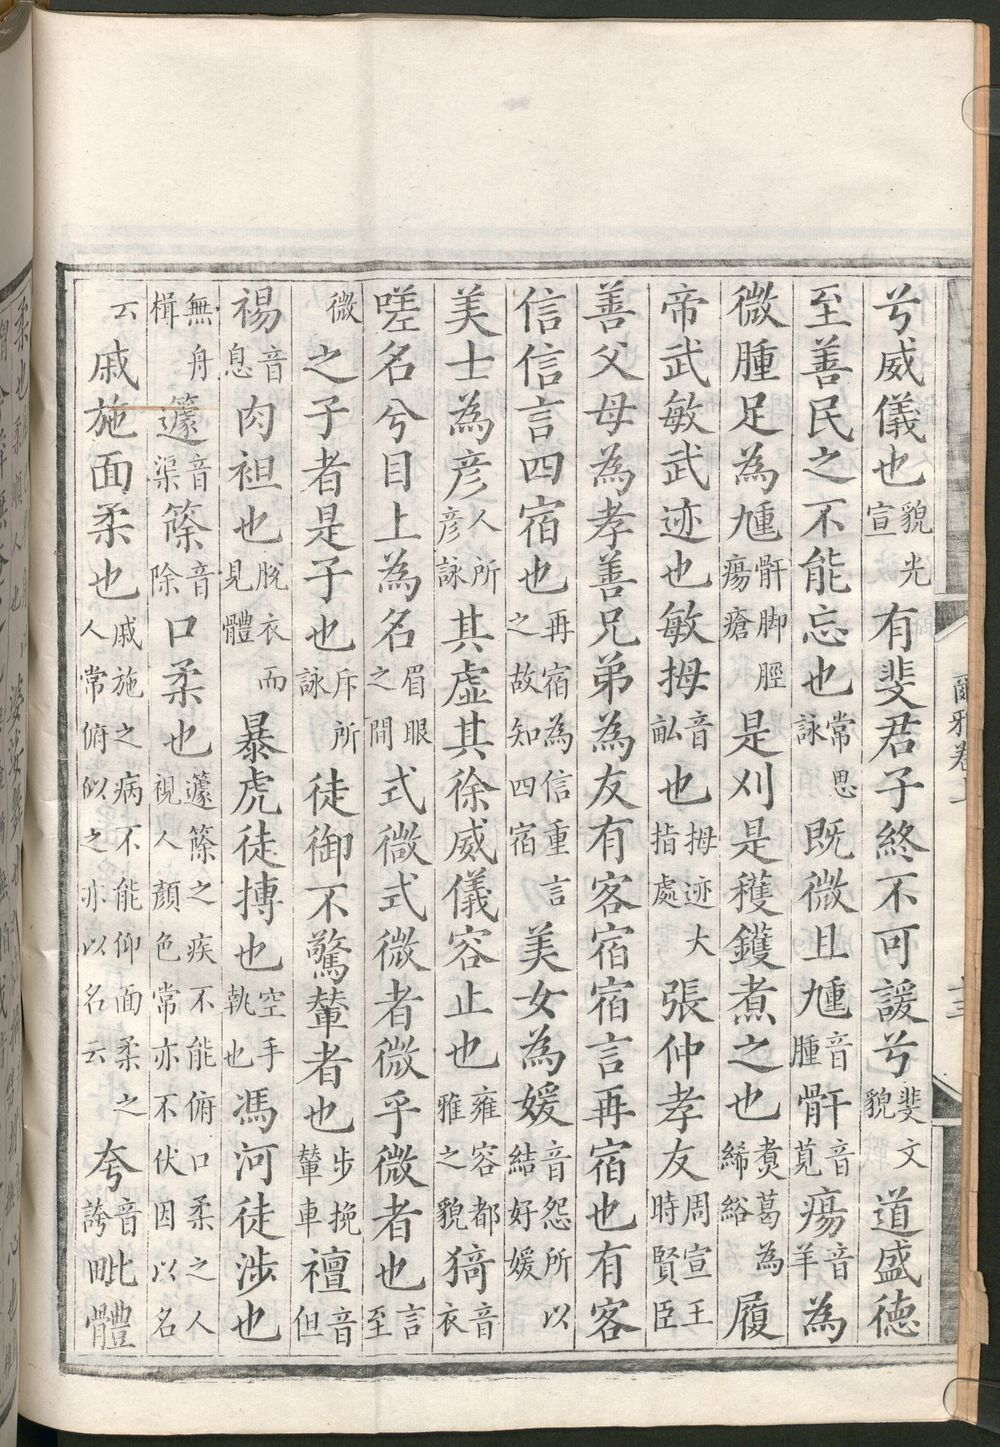 兮威儀也貌光宣有斐君子終不可諼兮斐文貌道盛德
至善民之不能忘也常思詠既微且尰音腫骭音莧瘍音羊為
微腫足為尰骭脚脛瘍瘡是刈是穫鑊煮之也煑葛為絺綌履
帝武敏武迹也敏拇音畝也拇迹大指處張仲孝友周宣王時賢臣
善父母為孝善兄弟為友有客宿宿言再宿也有客
信信言四宿也再宿為信重言之故知四宿美女為媛音怨所以結好媛
美士為彦人所彦詠其虛其徐威儀容止也雍容都雅之貌猗音衣
嗟名兮目上為名眉眼之間式微式微者微乎微者也言至
微之子者是子也斥所詠徒御不驚輦者也步挽輦車襢音但
裼音息肉袒也脫衣而見體暴虎徒搏也空手執也馮河徒涉也
無舟楫籧音渠篨音除口柔也籧篨之疾不能俯口柔之人視人顏色常亦不伏因以名
云戚施面柔也戚施之病不能仰面柔之人常俯似之亦以名云夸音誇毗體
爾雅卷上
十三